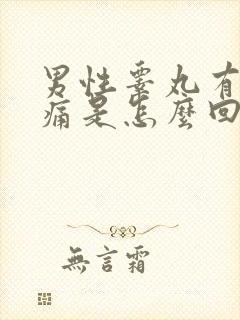 男性睾丸有
痛是怎麼回
無言霜